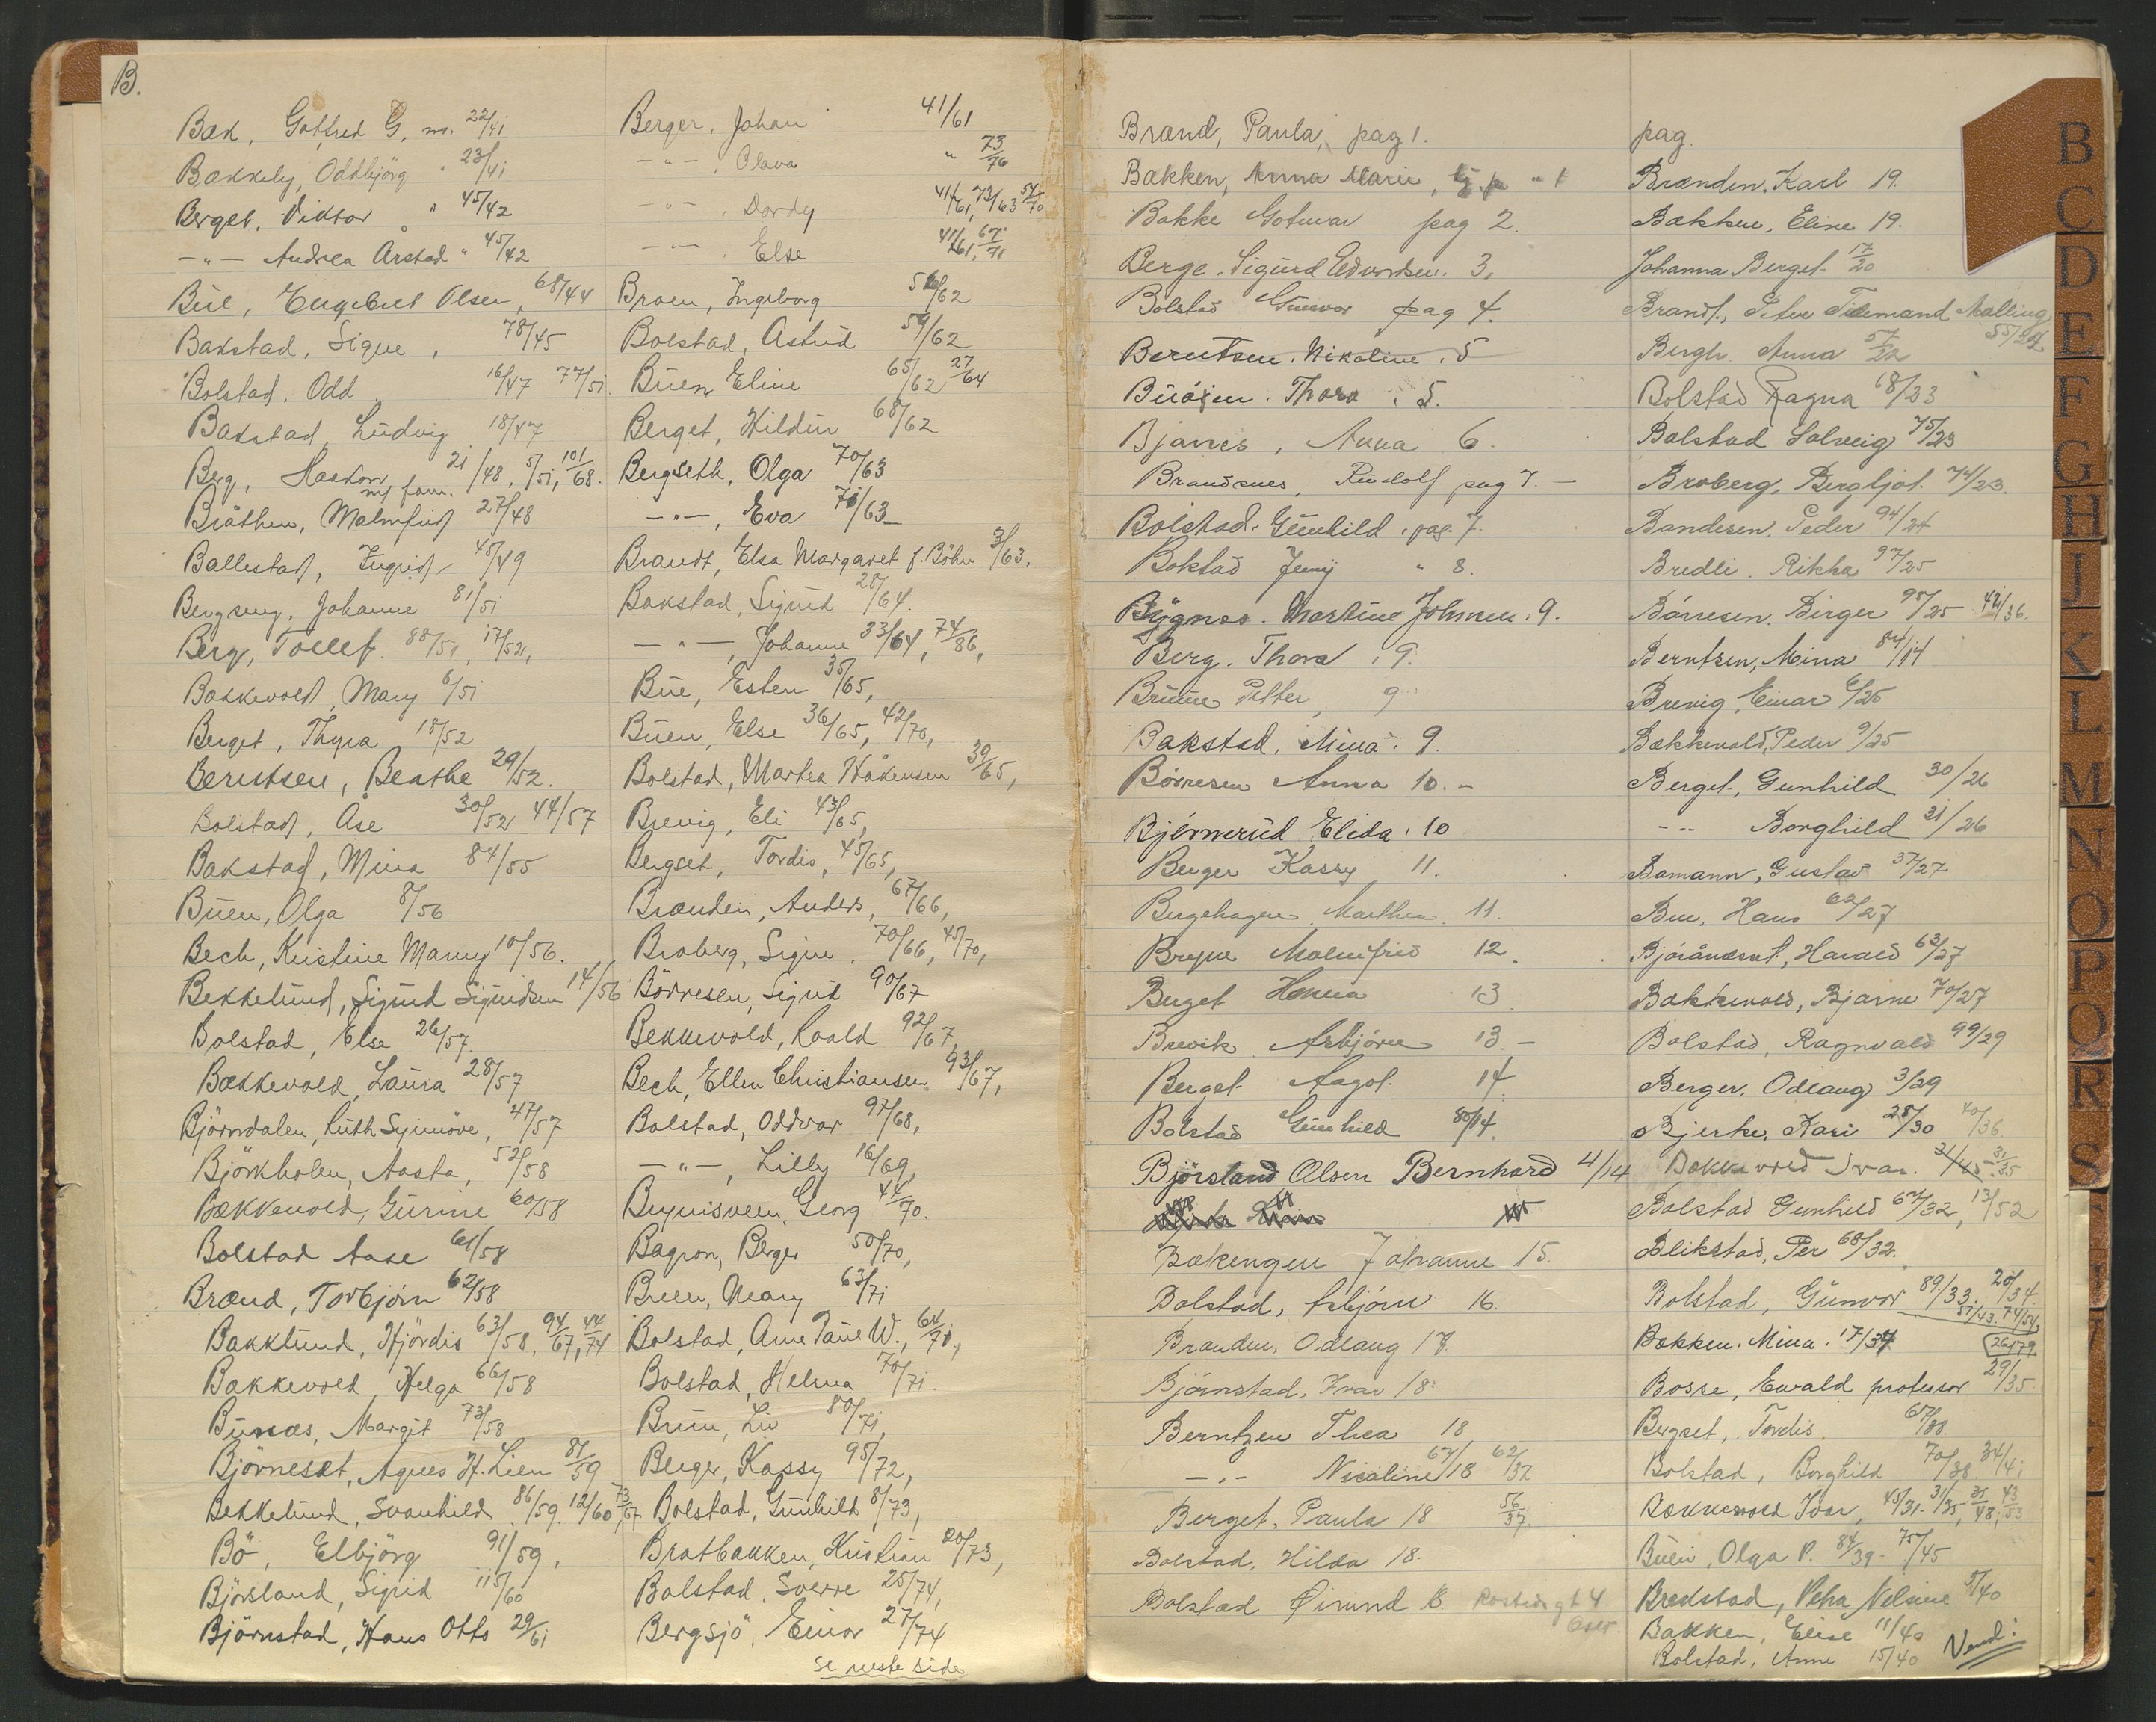 B.
Bæk, Gotfred G, m. 22/41
Bækkely, Oddbjörg " 23/41
Berget, Viktor " 45/42
-"- Andrea Årstad " 45/42
Bue, Engebret Olsen, 68/44
Bakstad, Signe, 78/45
Bolstad, Odd 16/47 77/51
Bakstad, Ludvig 18/47
Berg, Haakon m/ fam. 21/48, 5/51, 101/68.
Bråthen, Malmfrid 27/48
Ballestad, Ingrid 45/49
Bergseng, Johanne 81/51
Berg, Tollef. 88/51, 17/52,
Bækkevold, Mary 6/51
Berget, Thyra 18/52
Berntsen, Beathe 29/52.
Bolstad, Åse 30/52 44/57
Bakstad, Mina 84/55
Buen, Olga 8/56
Bech, Kristine Marny 10/56.
Bekkelund, Sigurd Sigurdsen 14/56
Bolstad, Else 26/57.
Bækkevold, Laura 28/57
Björndalen, Ruth Synnöve, 47/57
Björkholen, Aasta, 52/58
Bækkevold, Gurine 60/58
Bolstad Aase 61/58
Brænd, Torbjörn 62/58
Bakklund, Hjördis 63/58, 94/67, 44/74
Bakkevold, Helga 66/58
Bunæs, Margit 73/58
Björneset, Agnes H. Lien 81/59
Bekkelund, Svanhild 86/59. 12/60, 73/67
Bö, Elbjörg 91/59,
Björsland, Sigrid 115/60
Björnstad, Hans Otto 29/61
Berger, Johan 41/61
-"-, Olava " 73/76
-"-, Dordy 41/61, 73/63 54/70
-"- Else 41/61, 67/71
Braen, Ingeborg 56/62
Bolstad, Astrid 59/62
Buen Eline 65/62, 27/64
Berget, Hildur 68/62
Bergseth, Olga 70/63
-"-, Eva 71/63
Brandt, Elsa Margaret f. Böhn 3/63.
Bakstad, Sigrid 28/64.
-"-, Johanne 33/64, 74/86,
Bue, Esten 35/65,
Buen, Else 36/65, 42/70,
Bolstad, Martea Håkensen 39/65,
Brevig, Eli 43/65,
Bergset, Tordis, 45/65,
Brænden, Anders, 67/66,
Broberg, Signe. 70/66, 45/70,
Börresen, Sigrid 90/67
Bekkevold, Roald 92/67,
Bech, Ellen Christiansen 93/67,
Bolstad, Oddvar 97/68,
-"-, Lilly 16/69,
Georg 44/70.
Bagron, Berger 50/70,
Buen, Mary 63/71
Bolstad, Ane W., 64/71,
Bolstad, Helma 70/71.
Bruu, Liv 80/71,
Berger, Kassy 95/72,
Bolstad, Gunhild 8/73,
Bratbakken, Kristian 20/73,
Bolstad, Sverre 25/74,
Bergsjö, Einar 27/74
se neste side
Brænd, Paula, pag 1.
Bakken, Anna Marie, " 1
Bakke Gotmar pag 2.
Berge, Sigurd Edvardsen. 3.
Bolstad Gunvor pag 4.
Berntsen, Nikoline. 5
Thora. 5.
Bjarnes, Anna 6.
Brandsnes, Rudolf pag 7.-
Bolstad, Gunhild. pag. 7.
Bolstad Jenny " 8.
Bygnes. Martine Johnsen. 9.
Berg. Thora. 9.
Petter, 9
Bakstad. Mina. 9.
Börresen Anna 10.-
Björnerud Elida. 10
Berger Kassy 11.
Bergehagen Marthea. 11.
Bryne Malmfrid 12.
Berget 13
Brevik Asbjörn 13.-
Berget Aagot. 14
Bolstad Gunhild 80/14.
Björsland Olsen Bernhard 4/14
Bækengen Johanne 15.
Bolstad, Asbjörn 16.
Brænden, Odlaug 17.
Björnstad, Ivar 18.
Berntzen Thea 18
-"- Nicoline 67/18 62/32
Berget, Paula 18 56/37
Bolstad, Hilda 18.
Bolstad Öivind 18. 4 Oslo
pag.
Brænden, Karl 19.
Bækken, Eline 19.
Johanna Berget. 17/20
Brandt, Peter Tidemand Malling 55/24
Bergh Anna 57/22
Bolstad Ragna 68/23
Bolstad Solveig 75/23
Broberg, Bergljot. 74/23.
Bandesen. Peder 94/24
Bredli. Rikka 97/25
Börresen, Birger 95/25 42/36.
Berntsen, Mina 84/14
Brevig, Einar 6/25
Bækkevold, Peder 9/25
Berget, Gunhild 30/26
-"- Borghild 31/26
Bamann, Gustav 37/27
Bue, Hans 62/27
Harald 63/27
Bækkevold, Bjarne 70/27
Bolstad, Ragnvald 99/29
Berger, Odlaug 3/29
Bjerke, Kari 28/30 40/36
Bækkevold Ivar. 31/35
Bolstad Gunhild 67/32, 13/52
Blikstad, Per 68/32.
Bolstad, Gunvor 89/33. 20/34 51/43. 74/54, 26/79
Bakken, Mina. 17/34
Bosse, Ewald professor 29/35
Bergset, Tordis. 67/38.
Bolstad, Borghild 70/38. 34/41
Bækkevold Ivar, 45/31- 31/35, 35/48, 43/53
Buen, Olga P. 84/39- 75/45
Bredstad, Petra Nelsine 5/40
Bakken, Elise 11/40
Bolstad, Anne 15/40
Vend!
B
C
D
E
F
G
H
I
K
L
M
N
O
P
Q
R
S